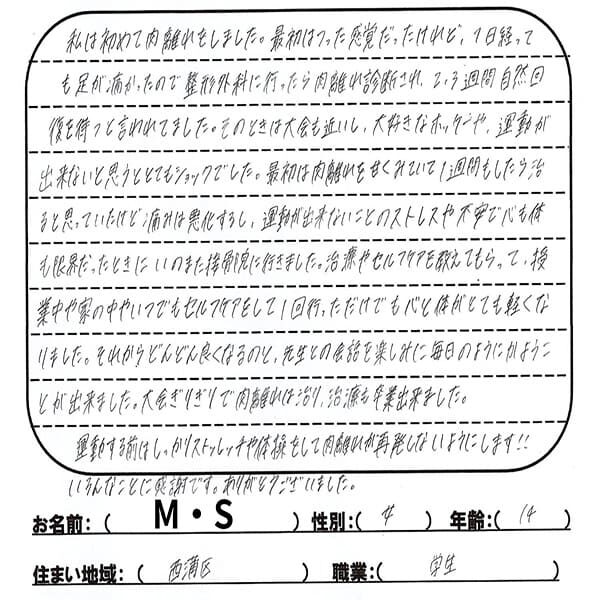 私は初めて肉離れをしました。最初はつった感覚だったけれど、1日経って
も足が痛かったので整形外科に行ったら肉離れ診断され、2,3週間自然回
復を待つと言われてました。そのときは大会も近いし、大好きなホッケーや、運動が
出来ないと思うととてもショックでした。最初は肉離れを甘くみていて1週間もしたら治
ると思っていたけど痛みは悪化するし、運動が出来ないことのストレスや不安で心も体
も限界だったときにいのまた接骨院に行きました。治療やセルフケアを教えてもらって、授
業中や家の中やいつでもセルフケアをして1回行っただけでも心と体がとても軽くな
りました。それからどんどん良くなるのと、先生との会話を楽しみに毎日のようにかようこ
とが出来ました。大会ぎりぎりで肉離れは治り、治療も卒業出来ました。
運動する前はしっかりストレッチや体操をして肉離れが再発しないようにします!!
いろんなことに感謝です。ありがとうございました。
お名前:( M・S ) 性別:( 女 ) 年齢:( 14 )
住まい地域:( 西蒲区 ) 職業:( 学生 )